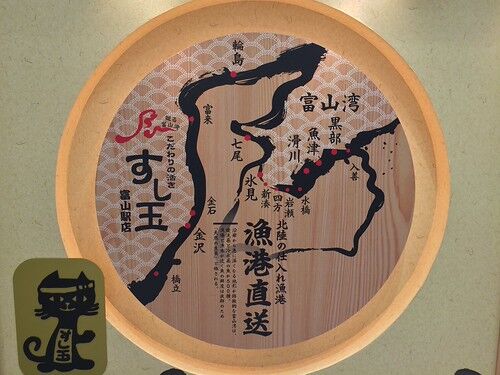 輪島
富山湾
黒部
魚津
滑川
入善
富来
七尾
氷見
新湊
四方
岩瀬
水橋
金石
金沢
橋立
北陸の仕入れ漁港
漁港直送
廻る富山湾
こだわりの活き
すし玉
富山駅店
すし玉